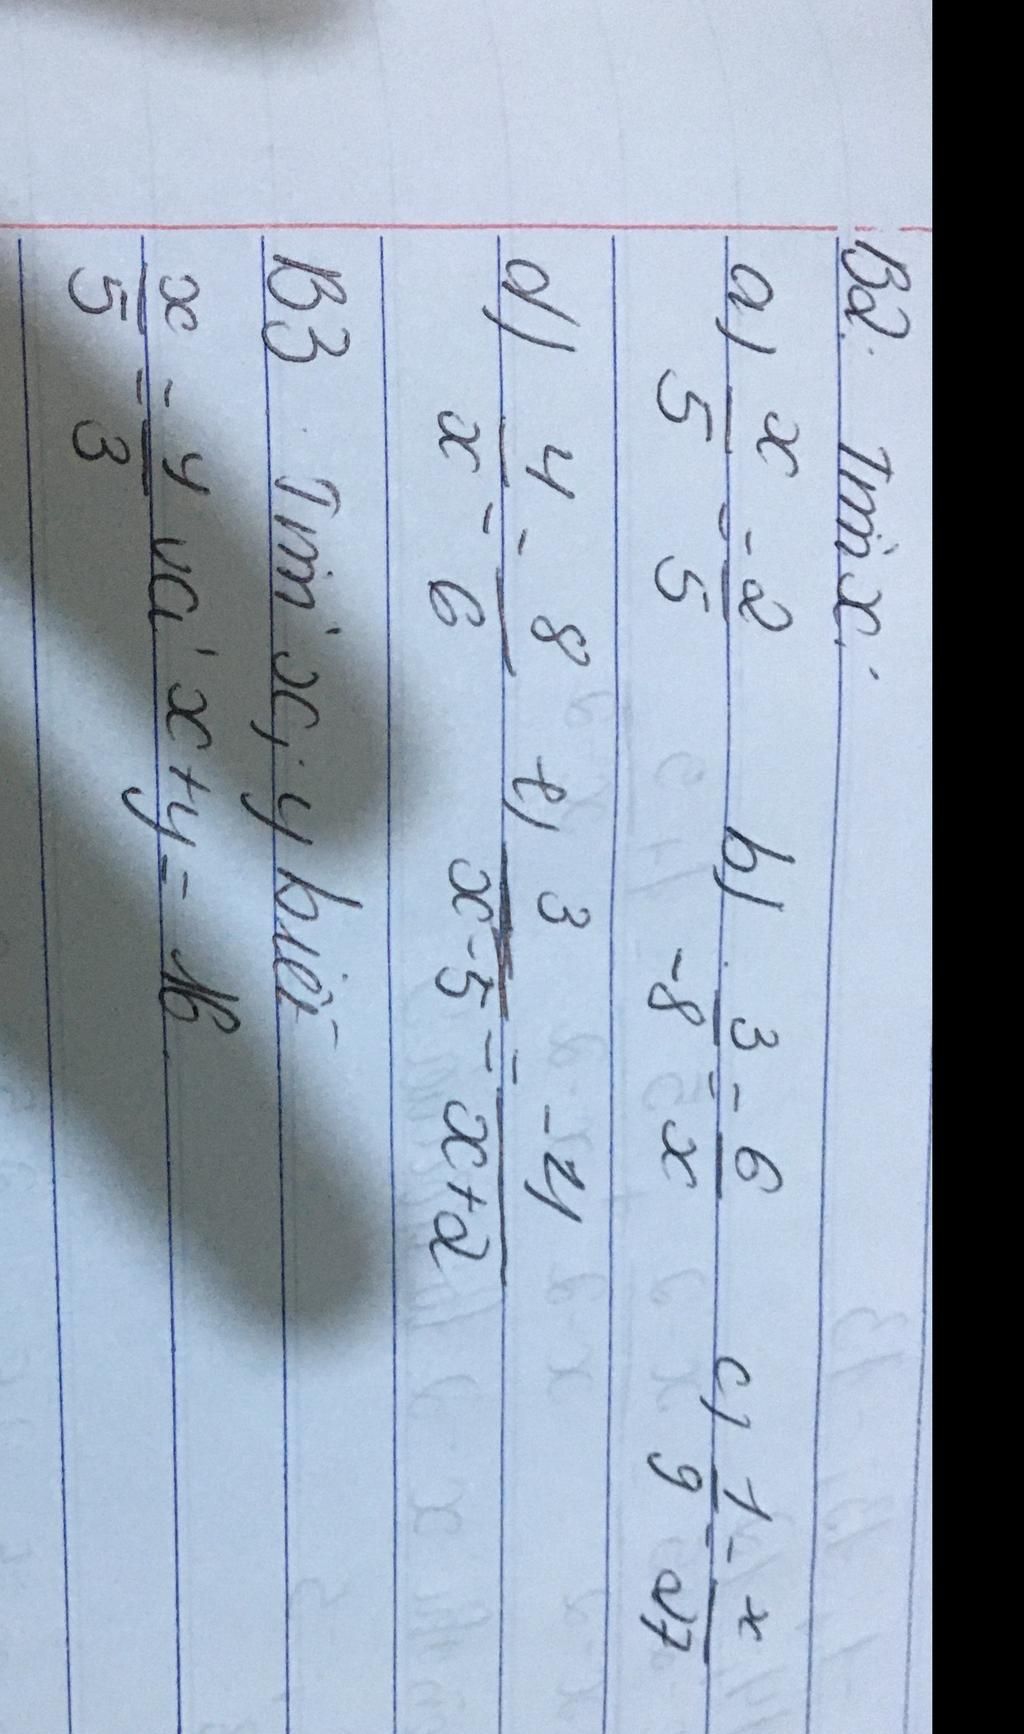 B2. Tìm x:
a) x/5 = 2/5 b) 3/-8 = 6/x c) 1/9 = x/27
d) 4/x = 8/6 e) 3/x-5 = -4/x+2
B3. Tìm x; y biết
x/5 = y/3 và x+y = 16